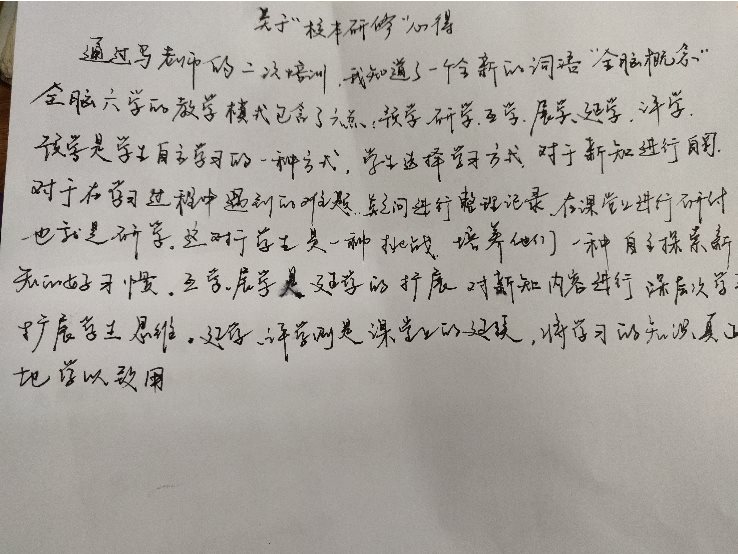 关于“校本研修”心得
通过马老师的二次培训，我知道了一个全新的词语“全脑概念”
全脑六学的教学模式包含了六点：预学、研学、互学、展学、延学、评学.
预学是学生自主学习的一种方式，学生选择学习方式，对于新知进行自学.
对于在学习过程中遇到的难题、疑问进行整理记录，在课堂上进行研讨
也就是研学。这对于学生是一种挑战，培养他们一种自主探索新
知的好习惯。互学、展学是延学的扩展，对新知内容进行深层次学
扩展学生思维。延学、评学则是课堂上的延续，将学习的知识真正
地学以致用